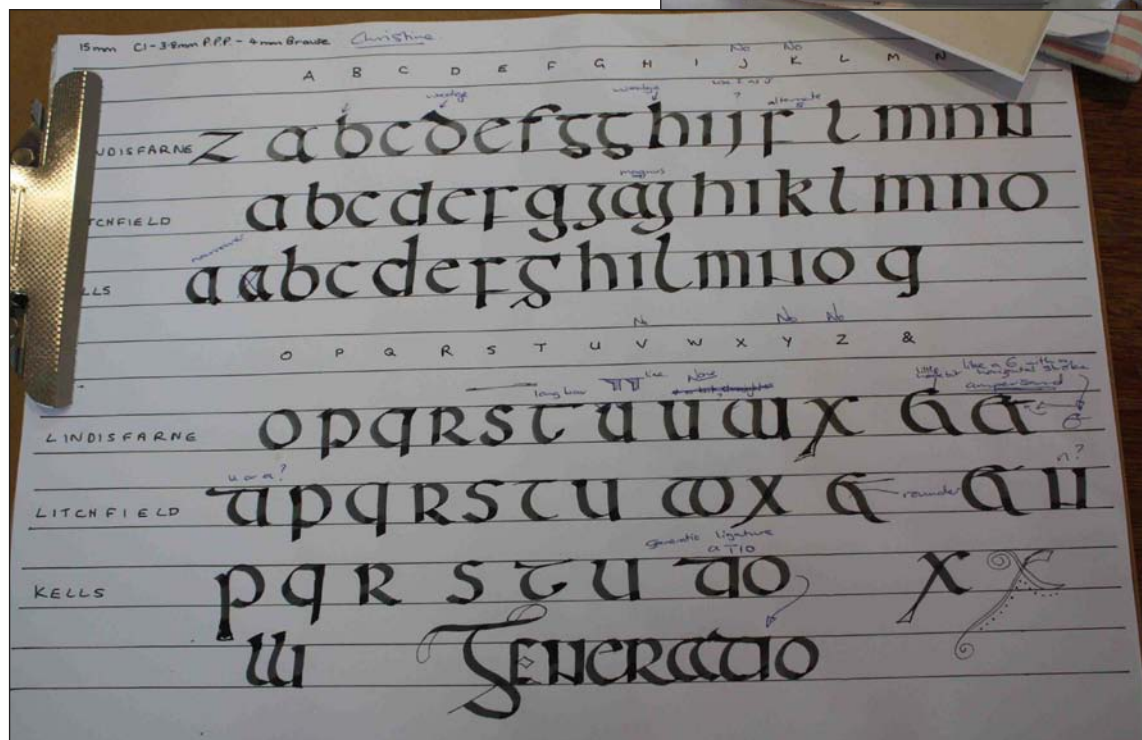 15mm C1-3.8mm P.P.P. - 4mm Brause Christine
No No
A B C D E F G H I J K L M N
wedge wedge ? alternate
NDISFARNE z a b c d e f g g h i j r l m n n
magnus
TCHFIELD a b c d e f g g g h i k l m n o
narrower
LLS a a b c d e f g h i l m n o g
No No No
O P Q R S T U V W X Y Z &
long bar like None little like a G with a horizontal stroke
ampersand
LINDISFARNE o p q R s t u u w x & &
u or a? n?
LITCHFIELD a p q R s t u w x & rounder & n
generatio ligature
a TIO
KELLS p q R s t u tio x x
w GENERATIO